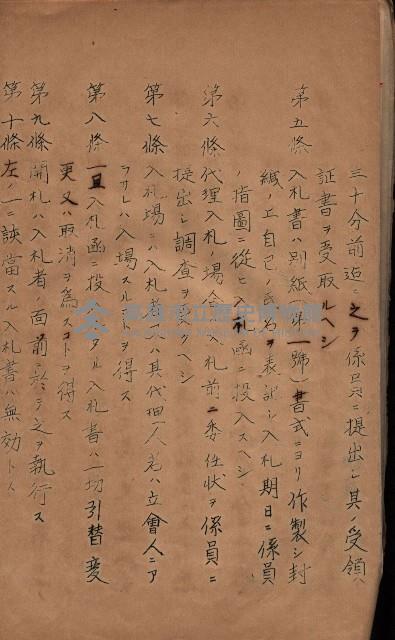 三十分前迄ニ之ヲ係員ニ提出シ其ノ受領
証書ヲ受取ルヘシ
第五條 入札書ハ別紙(第一號)書式ニヨリ作製シ封
緘ノ上自己ノ氏名ヲ表記シ入札期日ニ係員
ノ指圖ニ從ヒ入札函ニ投入スヘシ
第六條 代理入札ノ場 入札前ニ委任狀ヲ係員ニ
提出シ調査ヲ ヘシ
第七條 入札場ニハ入札者 ハ其代理人若ハ立會人ニア
ラサレハ入場スルコトヲ得ス
第八條 一旦入札函ニ投 タル入札書ハ一切引替變
更又ハ取消ヲ爲スコトヲ得ス
第九條 開札ハ入札者ノ面前ニ於テ之ヲ執行ス
第十條 左ノ一ニ該當スル入札書ハ無効トス
高雄市立歷史博物館